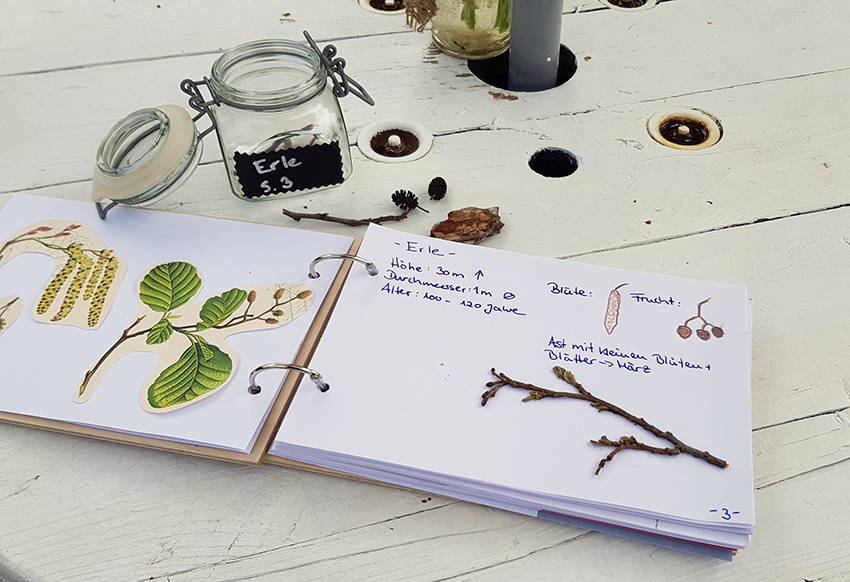 Erle
S. 3
- Erle -
Höhe: 30m ↑
Durchmesser: 1m ⌀
Alter: 100 - 120 Jahre
Blüte: Frucht:
Ast mit kleinen Blüten +
Blätter → März
- 3 -